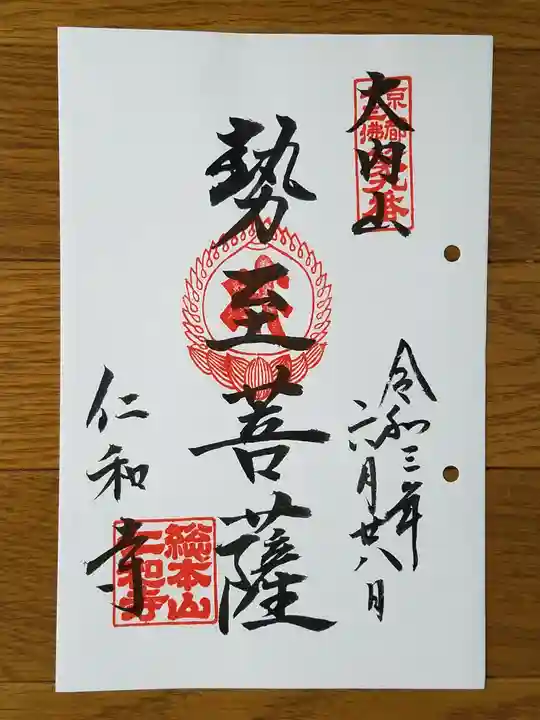 大内山
京都
十三佛
第九番
令和三年
六月廿八日
勢至菩薩
仁和寺
総本山
仁和寺